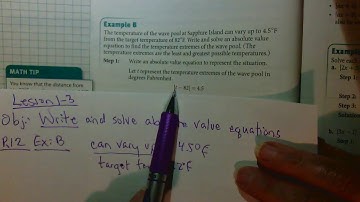 Example B
The temperature of the wave pool at Sapphire Island can vary up to 4.5°F
from the target temperature of 82°F. Write and solve an absolute value
equation to find the temperature extremes of the wave pool. (The
temperature extremes are the least and greatest possible temperatures.)
Step 1: Write an absolute-value equation to represent the situation.
Let t represent the temperature extremes of the wave pool in
degrees Fahrenheit.
- 82| = 4.5
MATH TIP
You know that the distance from
Lesson 1-3
Obj: Write and solve value equations
P.12 Ex: B can vary 4.5°F
target 82°F
solve
a. |2x
b.
c.